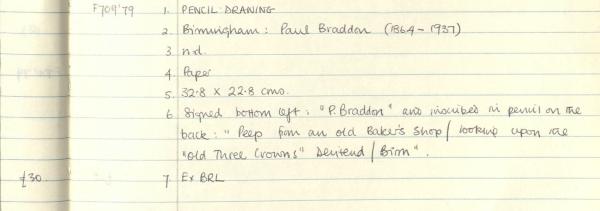 F709'79 1. PENCIL DRAWING
2. Birmingham: Paul Braddon (1864 - 1937)
3 n.d.
4. Paper
5. 32.8 X 22.8 cms.
6 Signed bottom left: "P. Braddon" and inscribed in pencil on the
back: "Peep from an old Baker's Shop / looking upon the
"Old Three Crowns" Deritend / Birm".
£30. 7 Ex BRL